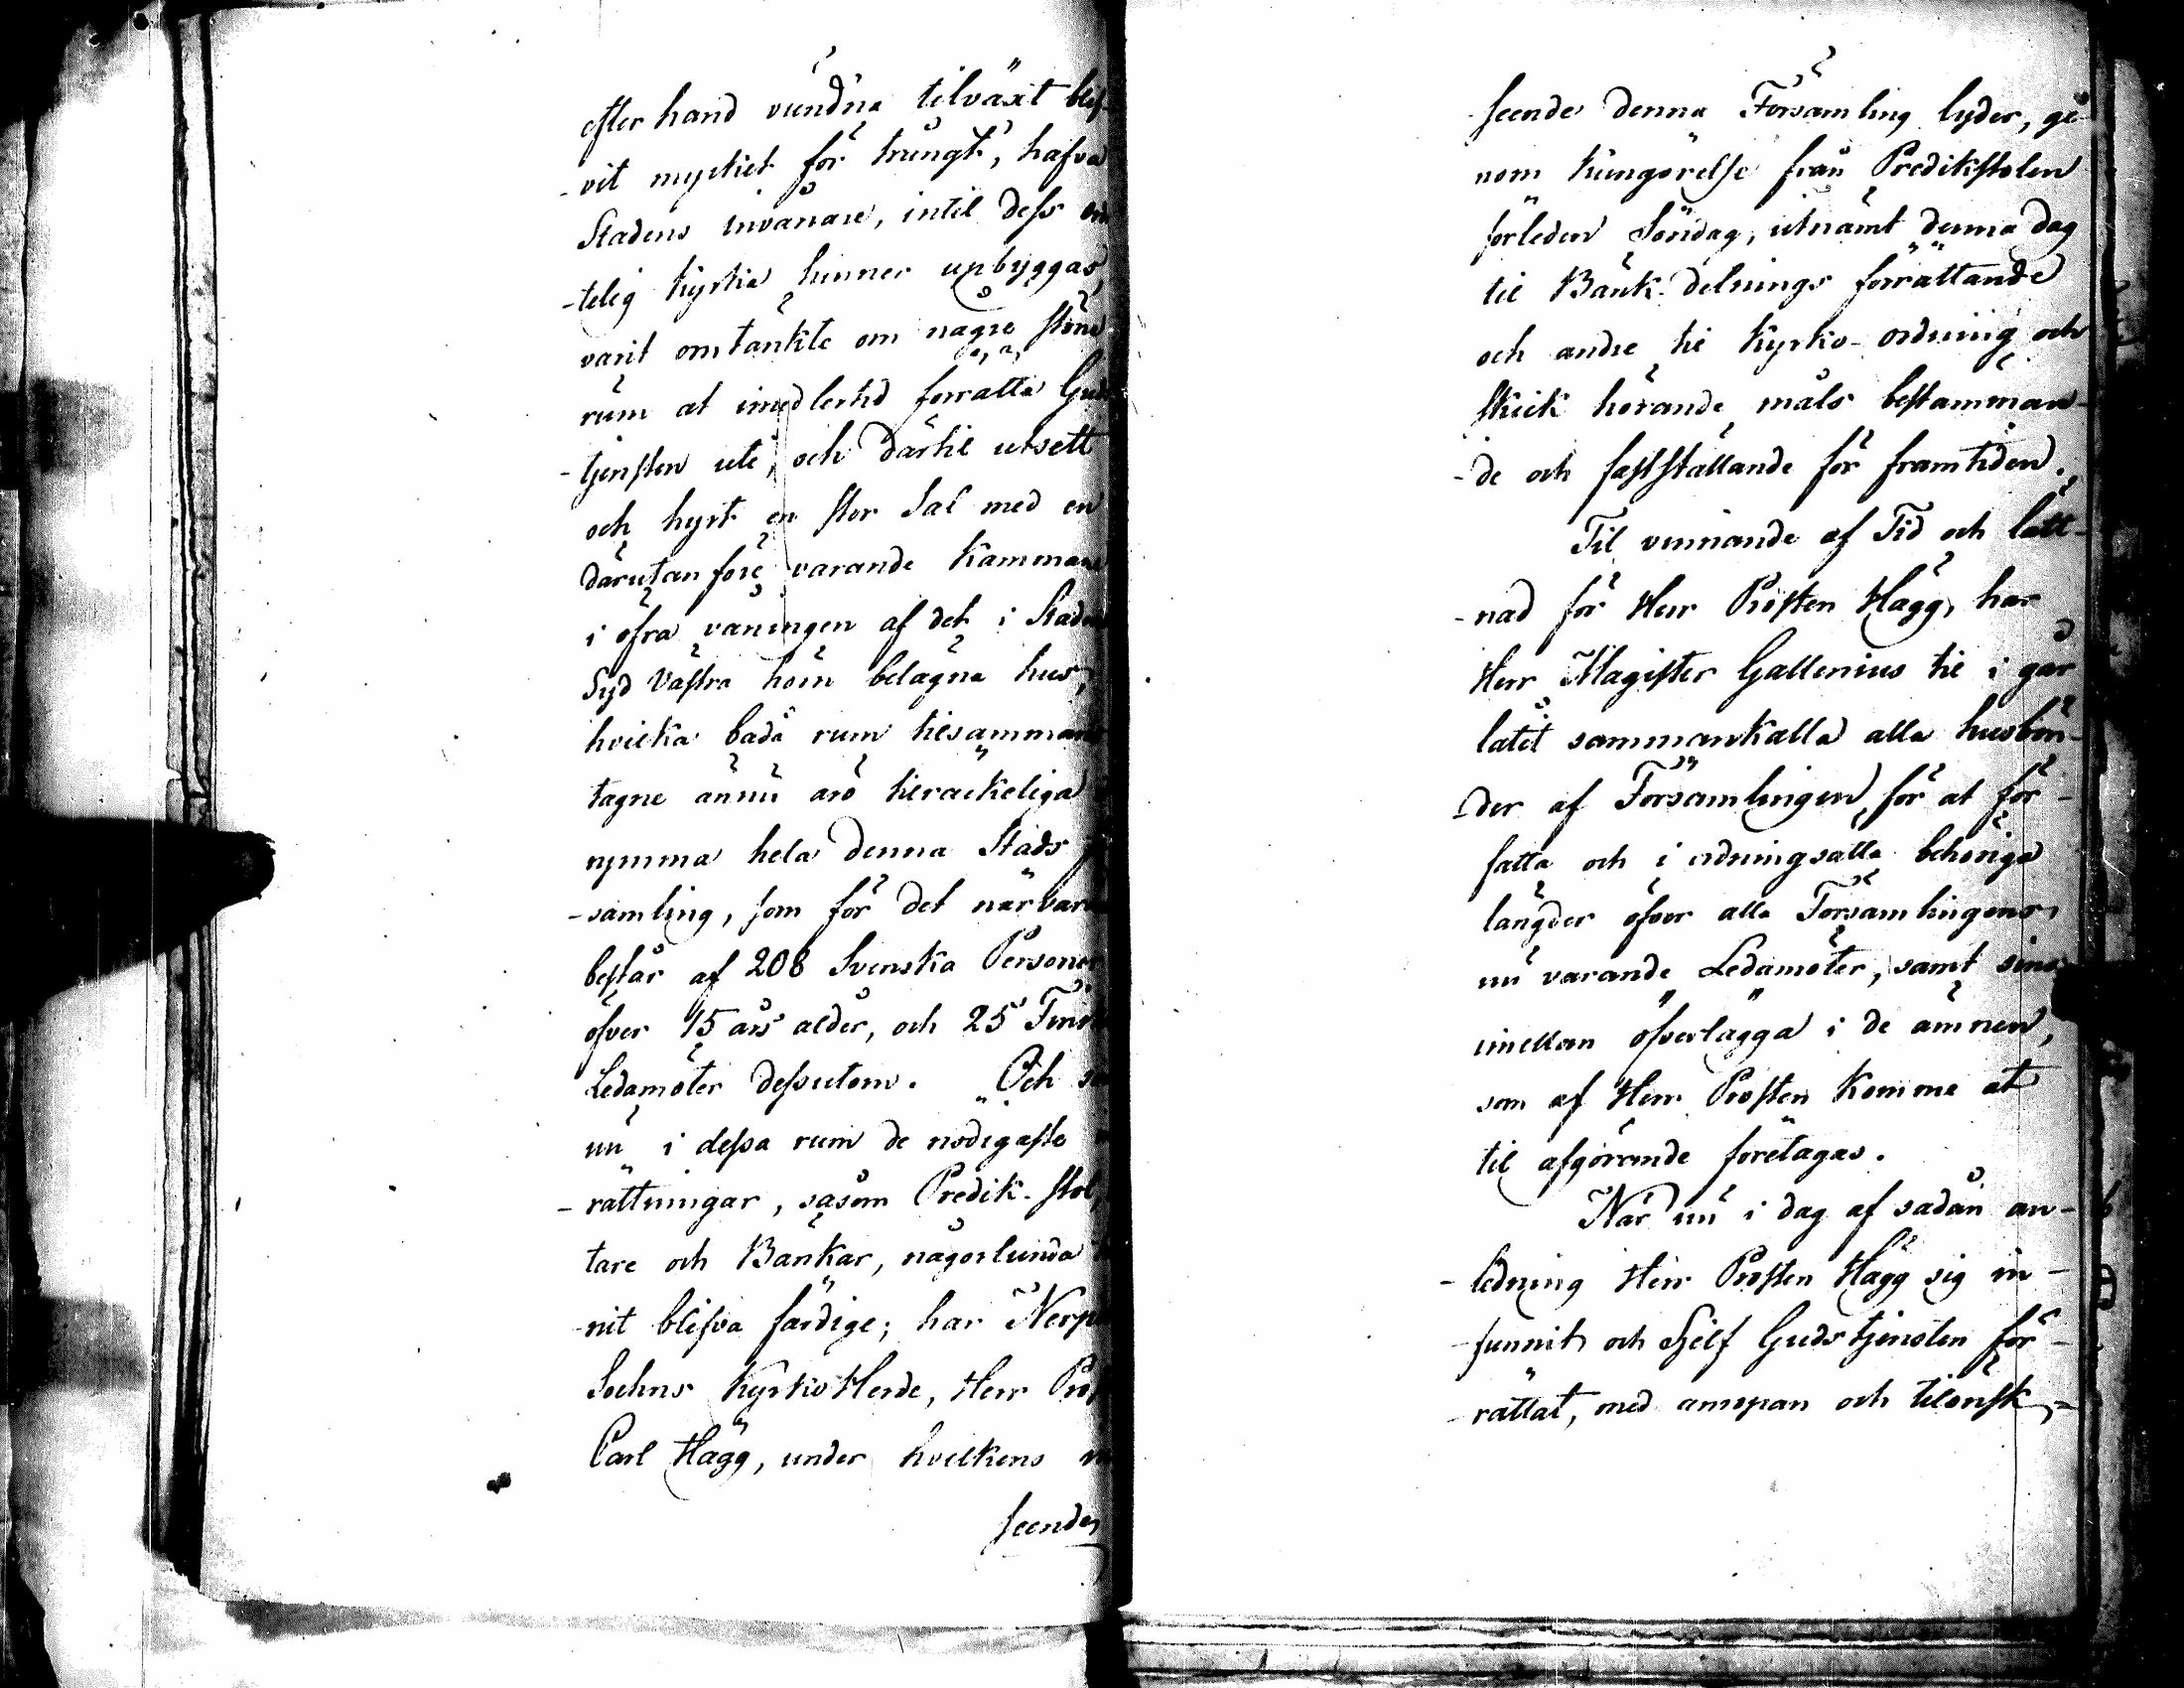 efter hand vundna tilväxt blif-
-vit myckit för trångt, hafva
Stadens invånare, intil dess
-telig kyrka hinner upbyggas,
varit omtänkte om någre större
rum at imedlertid förrätta Guds
-tjensten uti, och därtil utsett
och hyrt en stor Sal med en
därutanföre varande Kammare
i öfra våningen af det i Stadens
Syd Västra hörn belägna hus,
hvilka båda rum tilsammans
tagne ännu äro tilräckeliga
rymma hela denna Stads
-samling, som för det närvarande
består af 208 Svenska Personer
öfver 15 års ålder, och 25 Finska
Ledamöter dessutom. Och
nu i dessa rum de nödigaste
-rättningar, såsom Predik-stol,
tare och Bänkar, någorlunda
-nit blifva färdige; har Nerpes
Sochns KyrkoHerde, Herr
Carl Hägg, under hvilkens
seende
seende denna Församling lyder, ge-
nom kungörelse från Predikstolen
förleden Söndag, utnämt denna dag
til Bänk-delnings förrättande
och andre til Kyrko-ordning och
skick hörande måls bestämman-
-de och fastställande för framtiden.
Til vinnande af Tid och lätt-
-nad för Herr Prosten Hägg, har
Herr Magister Gallenius til i går
låtit sammankalla alla husbön-
-der af Församlingen, för at för-
fatta och i ordningsätta behöriga
längder öfver alla Församlingens
nu varande Ledamöter, samt sins
imellan öfverlägga i de ämnen,
som af Herr Prosten komme at
til afgörande företagas.
När nu i dag af sådan an-
-ledning Herr Prosten Hägg sig in-
-funnit och Sjelf Gudstjensten för-
-rättat, med anspan och tilönsk-